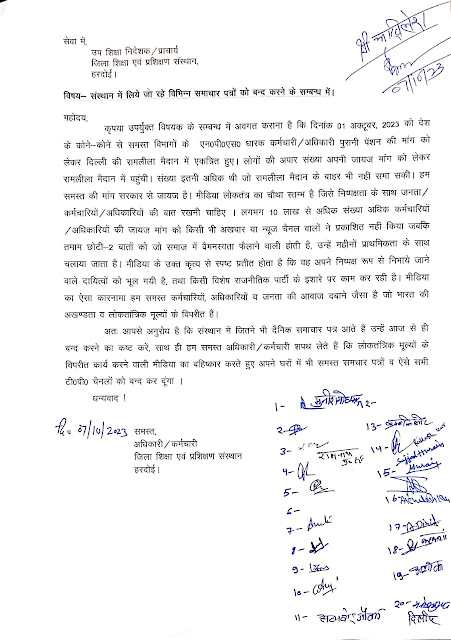 सेवा में,
उप शिक्षा निदेशक/प्राचार्य
जिला शिक्षा एवं प्रशिक्षण संस्थान,
हरदोई।
श्री अखिलेश
07/10/23
विषय– संस्थान में लिये जा रहे विभिन्न समाचार पत्रों को बन्द करने के सम्बन्ध में।
महोदय,
कृपया उपर्युक्त विषयक के सम्बन्ध में अवगत कराना है कि दिनांक 01 अक्टूबर, 2023 को देश
के कोने–कोने से समस्त विभागों के एन०पी०एस० धारक कर्मचारी/अधिकारी पुरानी पेंशन की मांग को
लेकर दिल्ली की रामलीला मैदान में एकत्रित हुए। लोगों की अपार संख्या अपनी जायज मांग को लेकर
रामलीला मैदान में पहुंची। संख्या इतनी अधिक थी जो रामलीला मैदान के बाहर भी नही समा सकी। हम
समस्त की मांग सरकार से जायज है। मीडिया लोकतंत्र का चौथा स्तम्भ है जिसे निष्पक्षता के साथ जनता/
कर्मचारियों/अधिकारियों की बात रखनी चाहिए । लगभग 10 लाख से अधिक संख्या अधिक कर्मचारियों
/अधिकारियों की जायज मांग को किसी भी अखबार या न्यूज चैनल वालों ने प्रकाशित नहीं किया जबकि
तमाम छोटी–2 बातों को जो समाज में वैमनस्यता फैलाने वाली होती है, उन्हें महीनों प्राथमिकता के साथ
चलाया जाता है। मीडिया के उक्त कृत्य से स्पष्ट प्रतीत होता है कि वह अपने निष्पक्ष रूप से निभाये जाने
वाले दायित्वों को भूल गयी है, तथा किसी विशेष राजनीतिक पार्टी के इशारे पर काम कर रही है। मीडिया
का ऐसा कारनामा हम समस्त कर्मचारियों, अधिकारियों व जनता की आवाज दबाने जैसा है जो भारत की
अखण्डता व लोकतांत्रिक मूल्यों के विपरीत है।
अतः आपसे अनुरोध है कि संस्थान में जितने भी दैनिक समाचार पत्र आते हैं उन्हें आज से ही
बन्द करने का कष्ट करें, साथ ही हम समस्त अधिकारी/कर्मचारी शपथ लेते हैं कि लोकतांत्रिक मूल्यों के
विपरीत कार्य करने वाली मीडिया का बहिष्कार करते हुए अपने घरों में भी समस्त समचार पत्रों व ऐसे सभी
टी०वी० चैनलों को बन्द कर दूंगा ।
धन्यवाद !
दि० 07/10/2023
समस्त,
अधिकारी/कर्मचारी
जिला शिक्षा एवं प्रशिक्षण संस्थान
हरदोई।
1-
2-
3-
4-
5-
6-
7-
8-
9-
10-
11-
12-
13-
14-
15-
16-
17-
18-
19-
20-
दिलीप